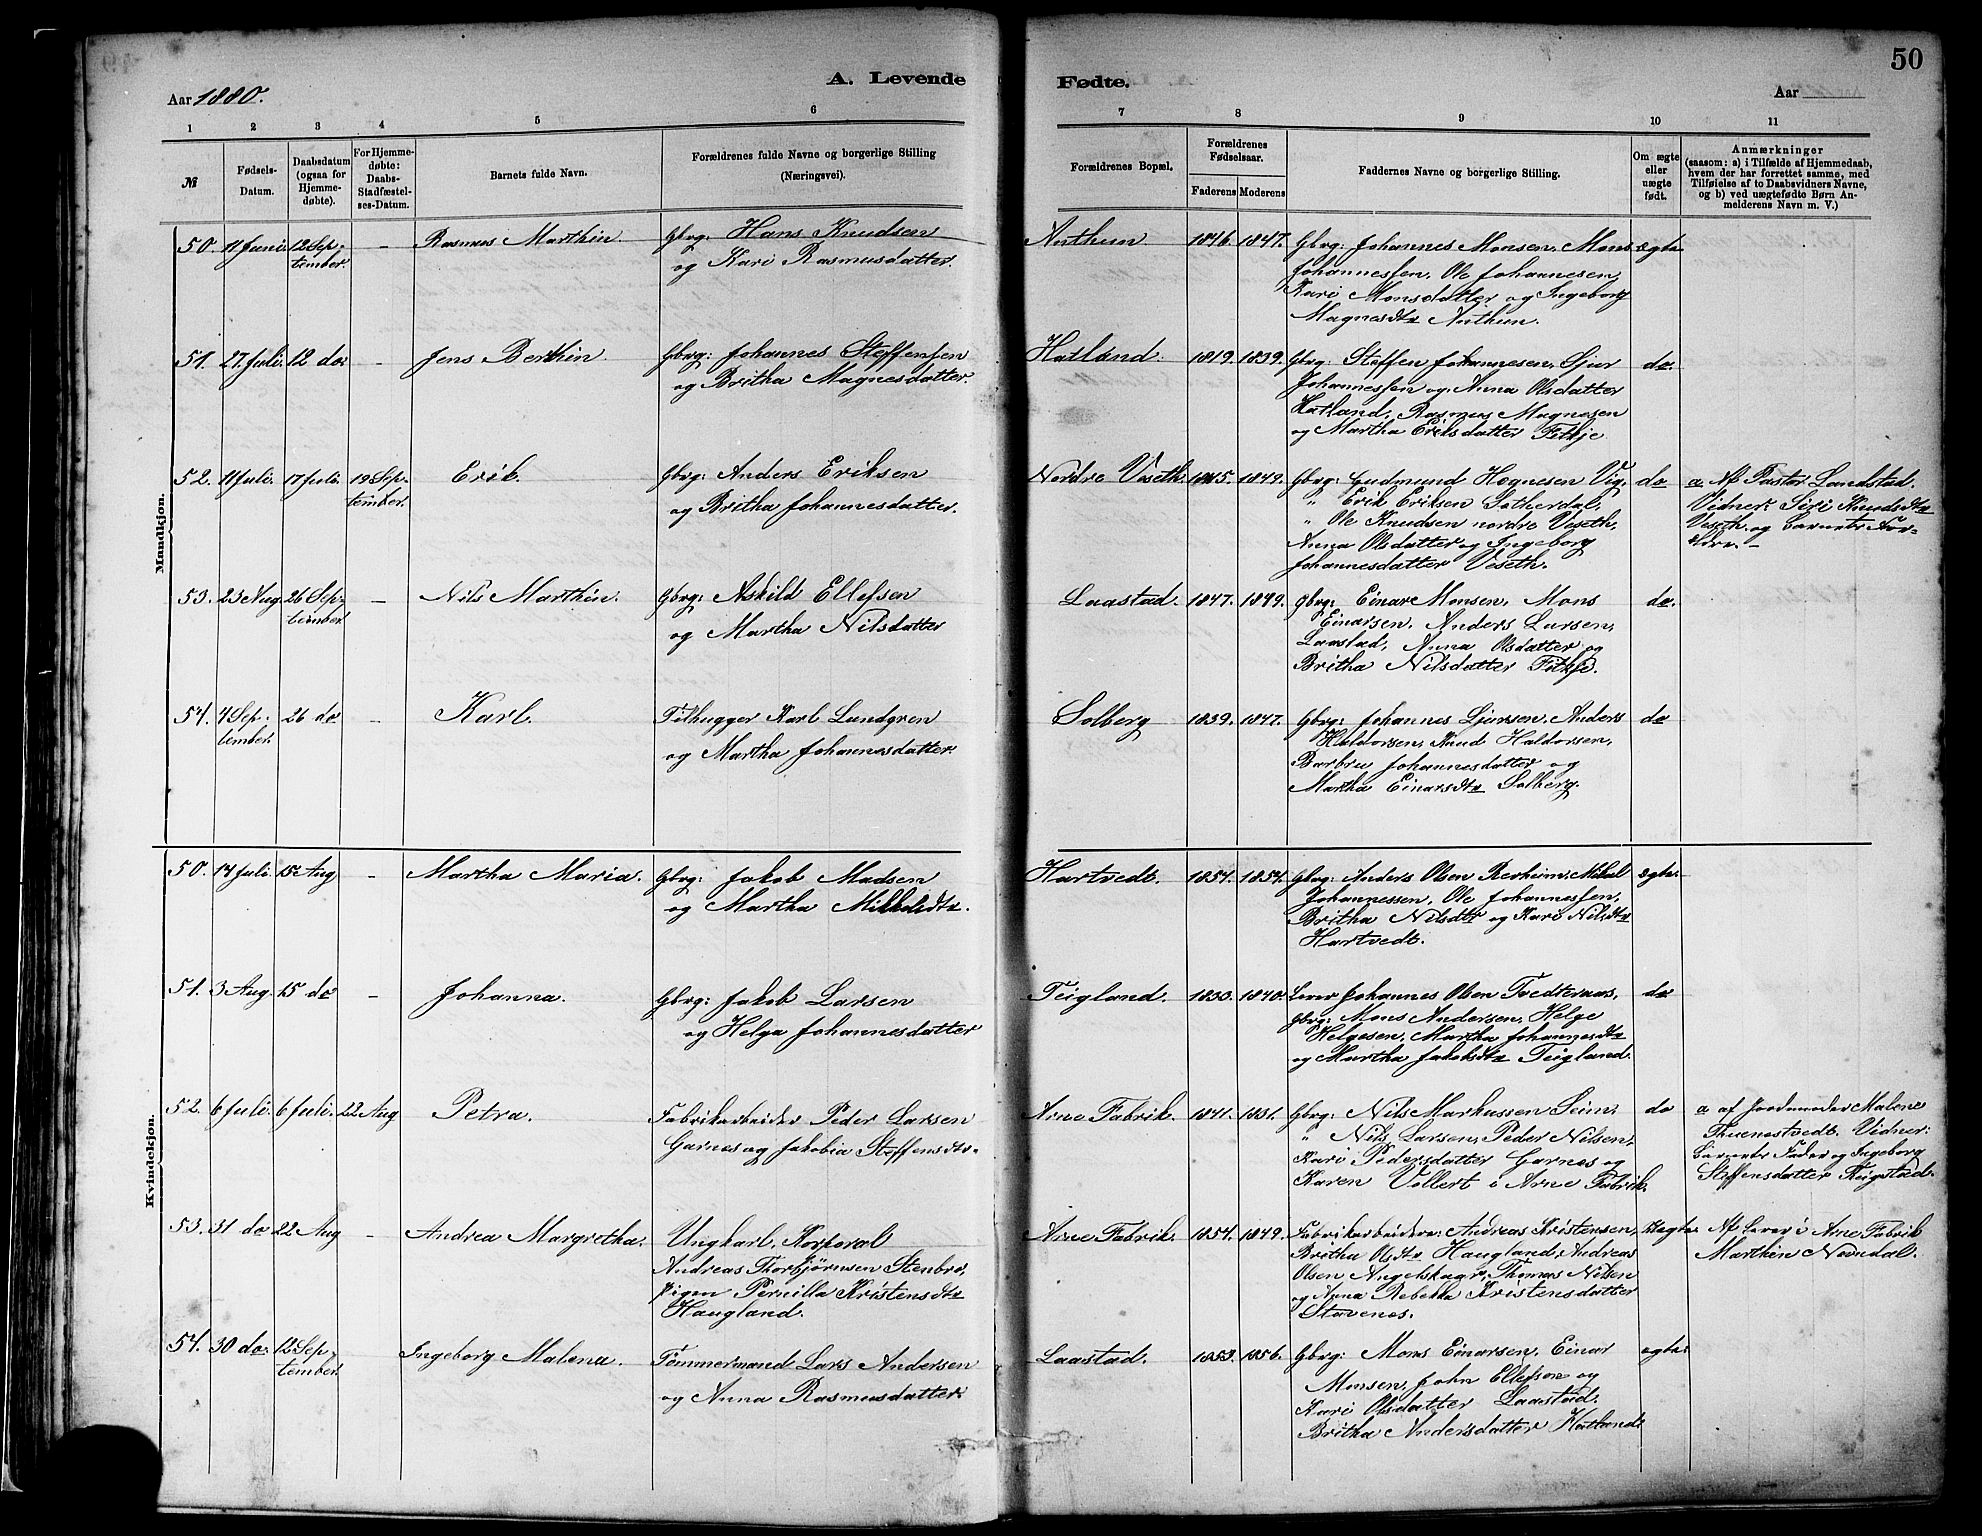 50
A. Levende Fødte.
Aar 1880.
Aar
1 2 3 4 5 6 7 8 9 10 11
№
Fødsels-
Datum.
Daabsdatum
(ogsaa for
Hjemme-
døbte).
For Hjemme-
døbte:
Daabs-
Stadfæstel-
ses-Datum.
Barnets fulde Navn.
Forældrenes fulde Navne og borgerlige Stilling
(Næringsvei).
Forældrenes Bopæl.
Forældrenes
Fødselsaar.
Faderens Moderens
Faddernes Navne og borgerlige Stilling.
Om ægte
eller
uægte
født.
Anmærkninger
(saasom: a) i Tilfælde af Hjemmedaab,
hvem der har forrettet samme, med
Tilføielse af to Daabsvidners Navne,
og b) ved uægtefødte Børn An-
melderens Navn m. V.)
Mandkjøn.
50. 11 Juni. 12 Sep-
tember. - Rasmus Marthin. Gbrg: Hans Knudsen
og Kari Rasmusdatter.
Arthun 1846. 1847. Gbrg: Johannes Monsen, Mons
Johannessen, Ole Johannesen,
Kari Monsdatter og Ingeborg
Magnesdtr Arthun.
ægte
51. 27 Juli. 12 do. - Jens Berthin. Gbrg: Johannes Steffensen
og Britha Magnesdatter.
Hatland. 1819. 1839. Gbrg: Steffen Johannesen, Sjur
Johannessen og Anna Olsdatter
Hatland, Rasmus Magnesen
og Martha Eriksdatter Fitkje.
do.
52. 11 Juli. 17 Juli. 19 Sep-
tember. Erik. Gbrg: Anders Eriksen
og Britha Johannesdatter.
Nordre Veseth. 1845. 1849. Gbrg: Gudmund Hognesen Vig,
" Erik Eriksen Sotherdal,
" Ole Knudsen nordre Veseth,
Anna Olsdatter og Ingeborg
Johannesdatter Veseth.
do
a. Af Pastor Landstad.
Vidner: Siri Knudsdtr
Veseth og Barnets For-
ældre. -
53. 23 Aug. 26 Sep-
tember. - Nils Marthin. Gbrg: Askild Ellefsen
og Martha Nilsdatter
Laastad. 1847. 1849. Gbrg: Einar Monsen, Mons
Einarsen, Anders Larsen,
Laastad, Anna Olsdatter og
Britha Nilsdatter Fitkje.
do.
54. 4 Sep-
tember. 26 do - Karl. Filhugger Karl Lundgren
og Martha Johannesdatter.
Solberg 1839. 1847. Gbrg: Johannes Sjursen, Anders
Haldorsen, Knud Haldorsen,
Barbra Johannesdatter og
Martha Einarsdtr Solberg.
do
Kvindekjøn.
50. 14 Juli. 15 Aug - Martha Maria. Gbrg: Jakob Madsen
og Martha Mikkelsdtr.
Hartvedt. 1854. 1854. Gbrg: Anders Olsen Revheim, Mikal
Johannessen, Ole Johannessen,
Britha Nilsdtr og Kari Nilsdtr
Hartvedt.
ægte.
51. 3 Aug. 15 do - Johanna. Gbrg: Jakob Larsen
og Helga Johannesdatter
Teigland. 1833. 1840. Lærer Johannes Olsen Tvedteraas,
Gbrg: Mons Andersen, Helge
Helgesen, Martha Johannesdtr
og Martha Jakobsdtr Teigland.
do
52. 6 Juli. 6 Juli. 22 Aug Petra. Fabrikarbeider Peder Larsen
Garnes og Jakobia Steffensdtr.
Arne Fabrik. 1841. 1831. Gbrg: Nils Markussen Seim,
" Nils Larsen, Peder Nilsen,
Kari Pedersdatter Garnes og
Karen Vollert i Arne Fabrik.
do
a af Jordemoder Malene
Thuenestvedt. Vidner:
Barnets Fader og Ingeborg
Steffensdatter Reigstad.
53. 31 do 22 Aug - Andrea Margretha. Ungkarl, Korporal
Andreas Thorbjørnsen Stenbro,
Pigen Pernilla Kristensdtr
Haugland.
Arne Fabrik. 1854. 1849. Fabrikarbeidere: Andreas Kristensen,
Britha Olsdtr Haugland, Andreas
Olsen Angelskaar, Thomas Nilsen
og Anna Rebekka Kristensdatter
Stavenes.
Uægte.
Af Lærer i Arne Fabrik
Marthin Nævdal.
54. 30 do. 12 Sep-
tember. - Ingeborg Malena. Tømmermand Lars Andersen
og Anna Rasmusdatter
Laastad. 1853. 1856. Gbrg: Mons Einarsen, Einar
Monsen, John Ellefsen og
Kari Olsdatter Laastad.
Britha Andersdatter Hatland.
ægte.